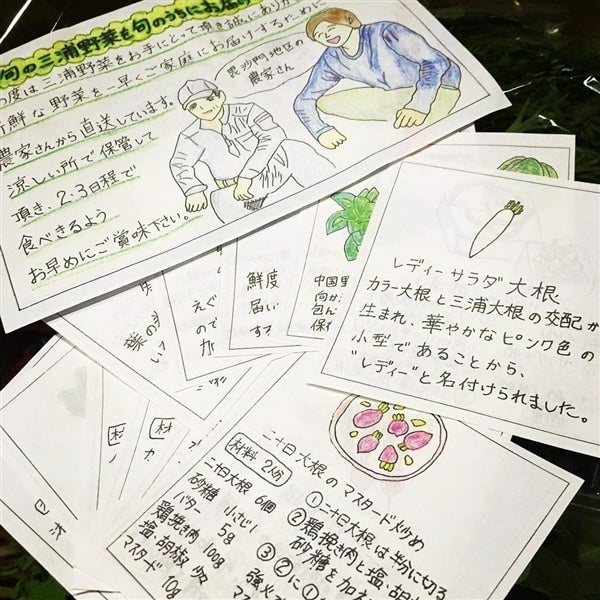 旬の三浦野菜を旬のうちにお届け
の度は三浦野菜をお手にとって頂き誠にありが
新鮮な野菜を一早くご家庭にお届けするために
農家さんから直送しています。
涼しい所で保管して
頂き、2.3日程で
食べきるよう
お早めにご賞味下さい。
毘沙門地区の
農家さん
レディーサラダ大根
カラー大根と三浦大根の交配か
生まれ、華やかなピンク色の
小型であることから、
"レディー"と名付けられました。
鮮度
届い
すス
中国
向か
包ん
保イ
えぐ
ので
葉の
二十日大根のマスタード炒め
材料 2人分
二十日大根 6個
砂糖 小さじ1
バター 5g
鶏挽き肉 100g
塩、胡椒 少々
マスタード 10g
①二十日大根は半分に切る
②鶏挽き肉と塩・胡
砂糖を加え
③②に①
強火
マス